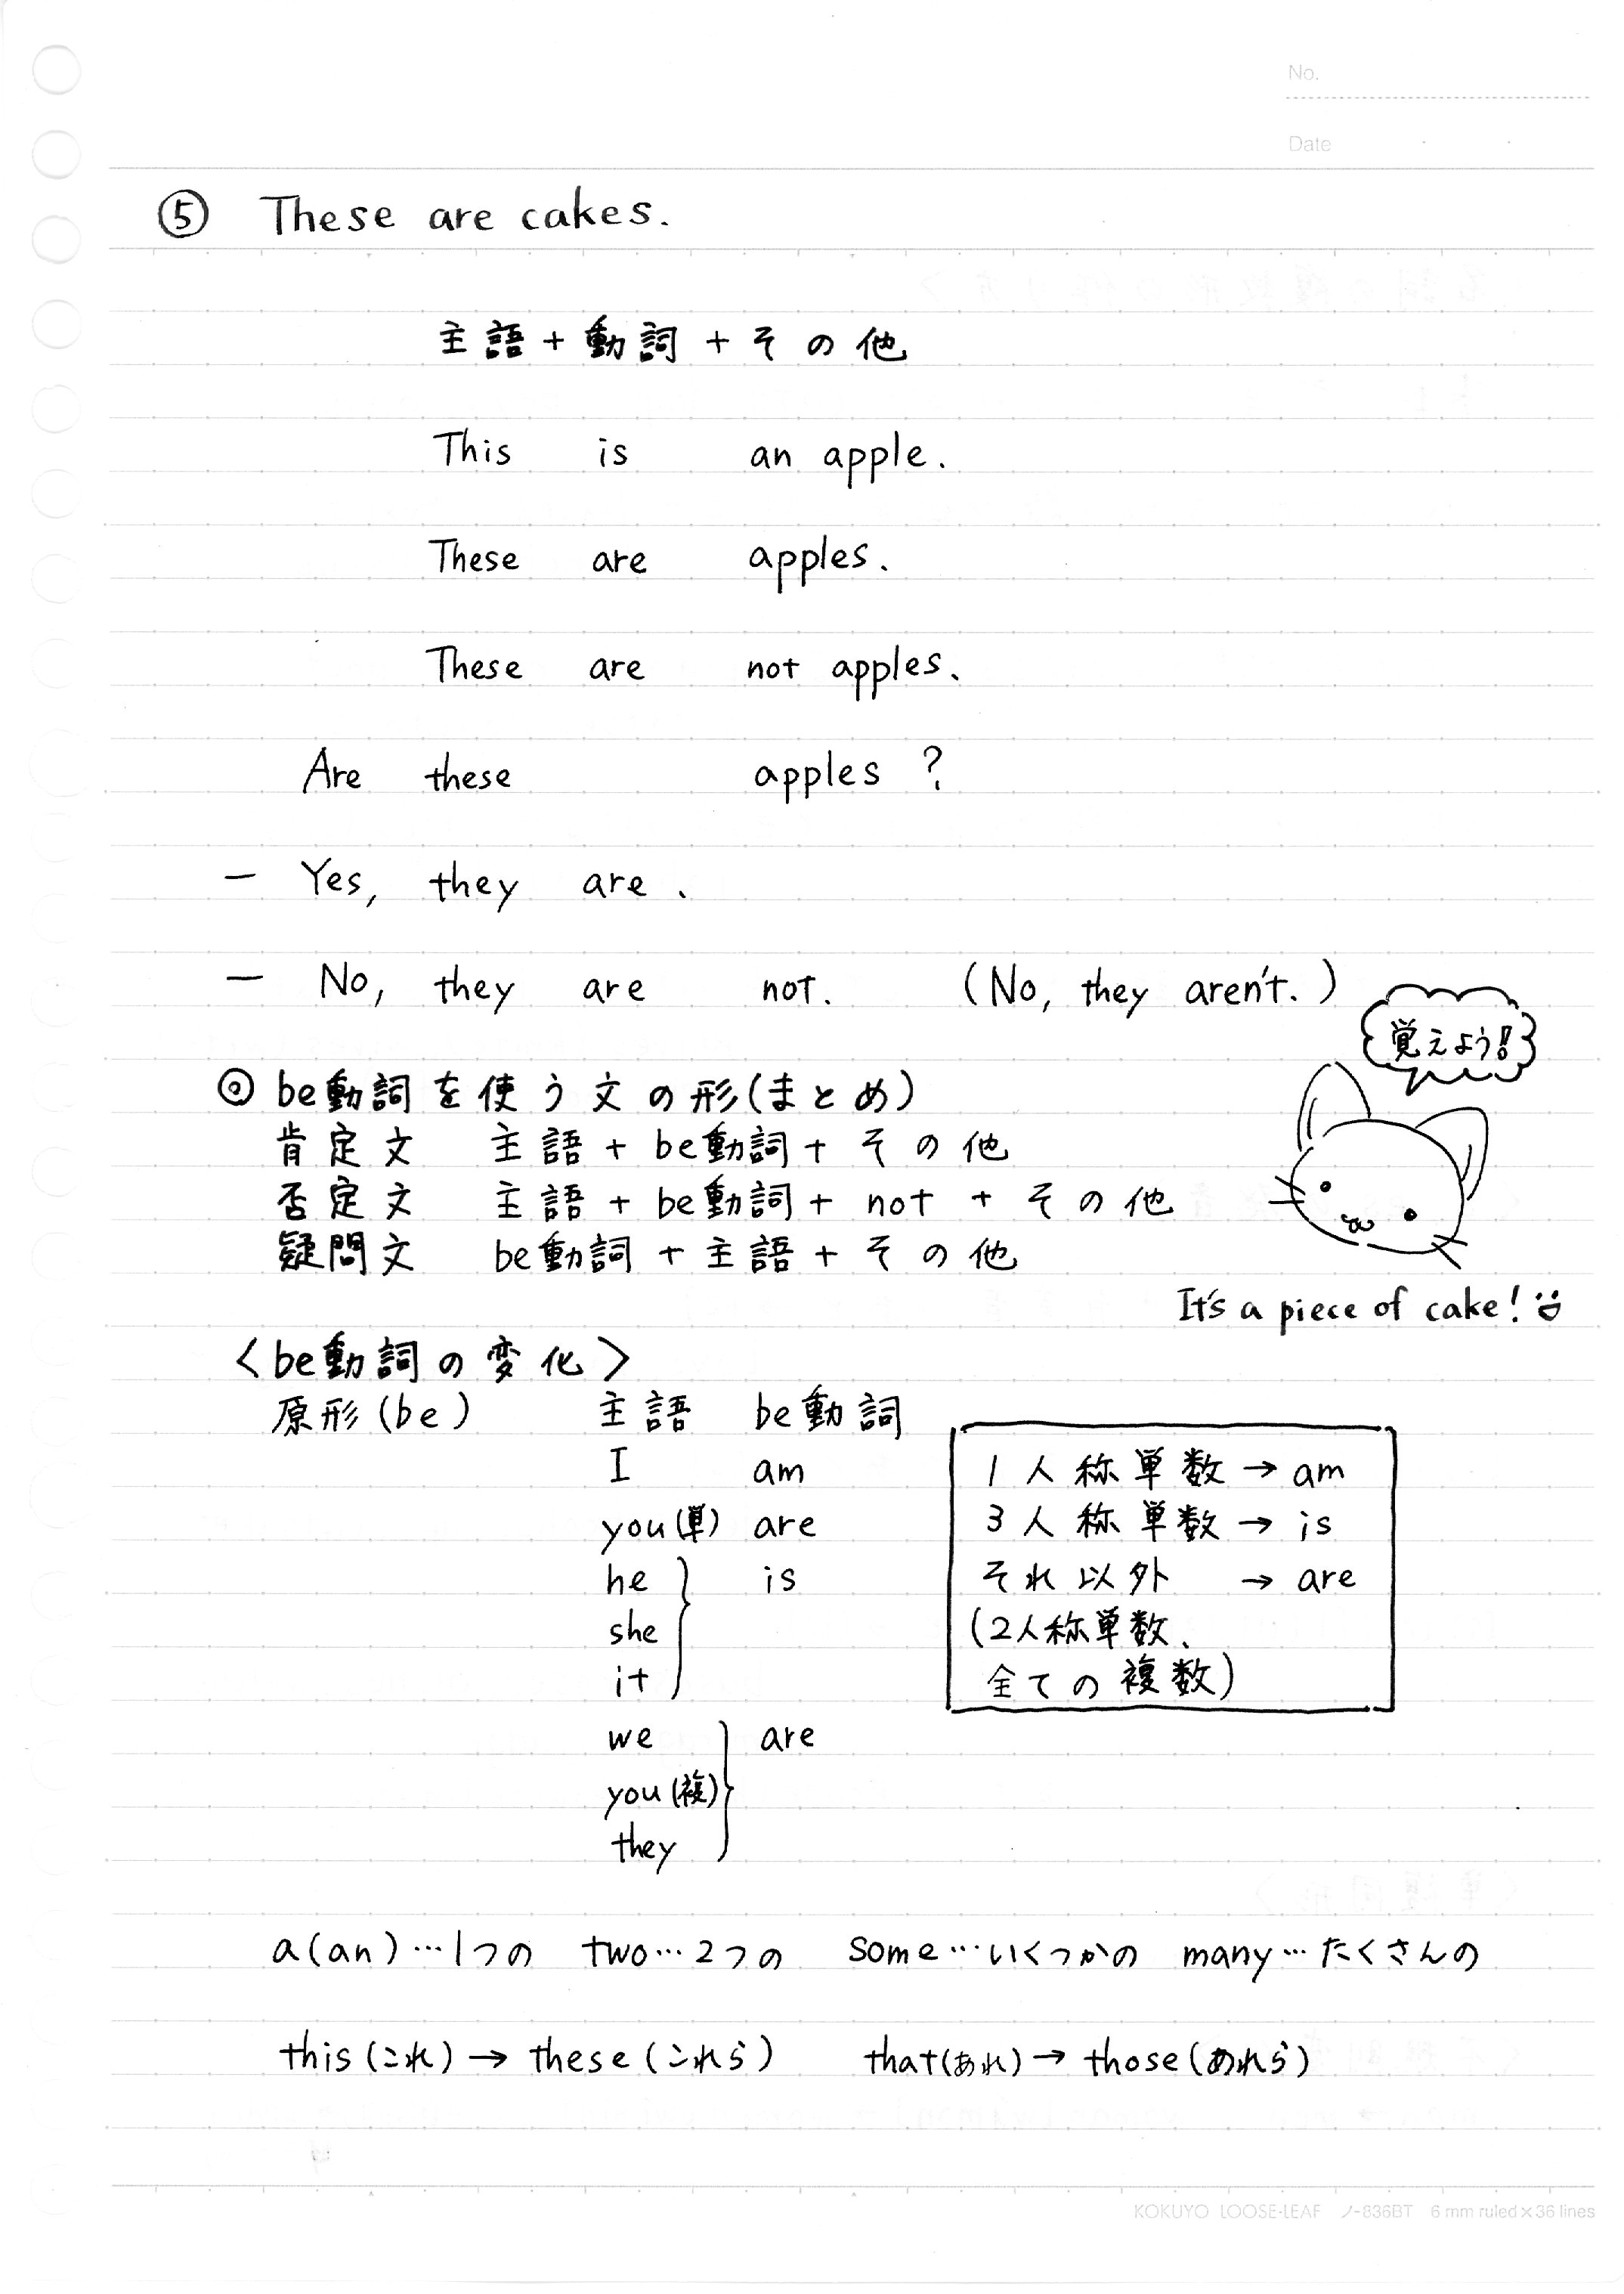 No.
Date
⑤ These are cakes.
主語+動詞+その他
This is an apple.
These are apples.
These are not apples.
Are these apples ?
― Yes, they are.
― No, they are not. (No, they aren't.)
覚えよう!
◎ be動詞を使う文の形(まとめ)
肯定文 主語+be動詞+その他
否定文 主語+be動詞+not+その他
疑問文 be動詞+主語+その他
It's a piece of cake!
〈be動詞の変化〉
原形(be) 主語 be動詞
I am
you(単) are
he is
she
it
we are
you(複)
they
1人称単数→am
3人称単数→is
それ以外 →are
(2人称単数、
全ての複数)
a(an)…1つの two…2つの some…いくつかの many…たくさんの
this(これ)→these(これら) that(あれ)→those(あれら)
KOKUYO LOOSE-LEAF ノ-836BT 6 mm ruled×36 lines